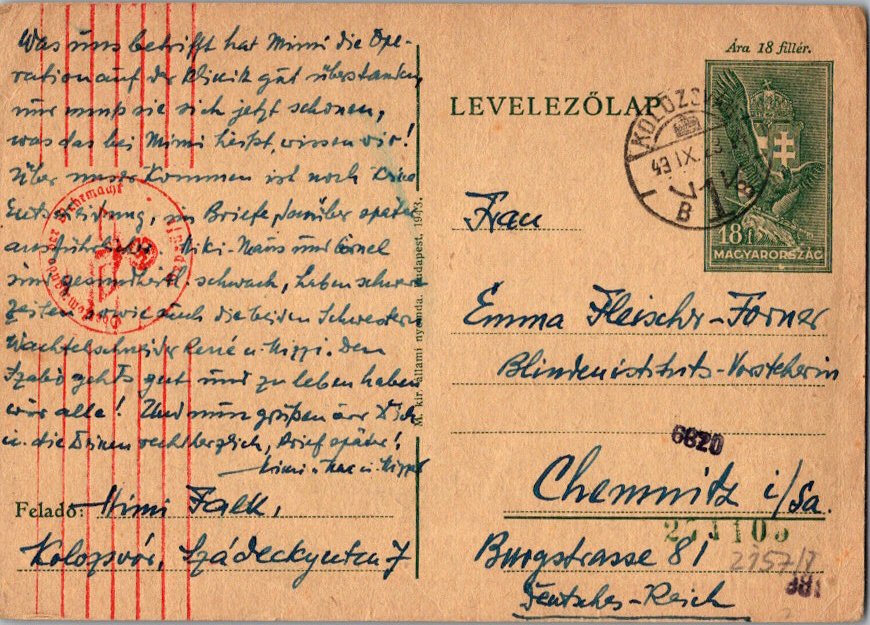 Was uns betrifft hat Mimi die Ope-
ration auf der Klinik gut überstanden,
nur muss sie sich jetzt schonen,
was das bei Mimi heisst, wissen wir!
Über unser Kommen ist noch keine
Entscheidung, im Briefe darüber später
ausführlicher. Miki-Maus und
sind gesundheitl. schwach, haben schwere
Zeiten sowie auch die beiden Schwestern
Wachtelschneider René u. Mizzi. Den
Szabó geht's gut und zu leben haben
wir alle! Und nun grüßen wir Dich
u. die Deinen recht herzlich, Brief später!
Mimi
Feladó: Mimi Falk,
Kolozsvár, Szádeckyuten 7
M. kir. állami nyomda, Budapest, 1943.
Ára 18 fillér.
LEVELEZŐLAP
KOLOZSVÁR
43 IX. 23
B 1 B
18f
MAGYARORSZÁG
Frau
Emma Fleischer-Forner
Blindeninstituts-Vorsteherin
6820
Chemnitz i/Sa.
Burgstrasse 81
2157/8
Deutsches-Reich
Oberkommando der Wehrmacht